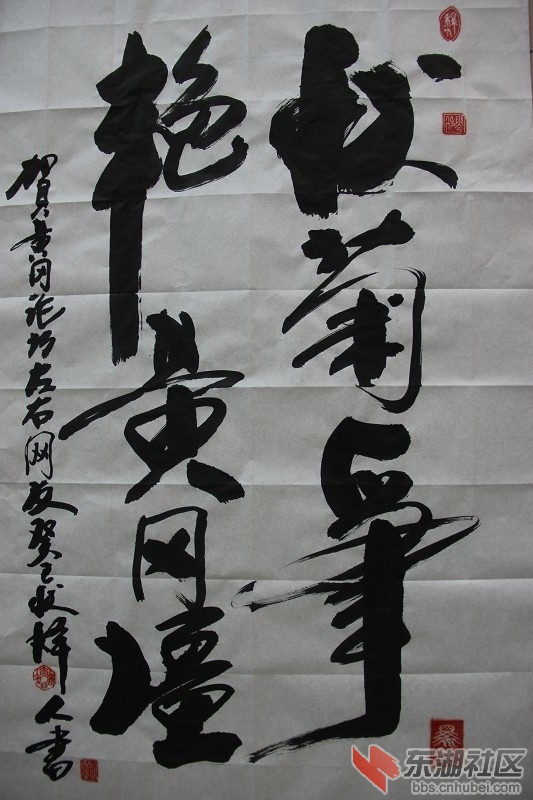 秋菊爭
艳黄冈壇
贺黄冈论坛网友癸巳秋人书
东湖社区
bbs.cnhubei.com